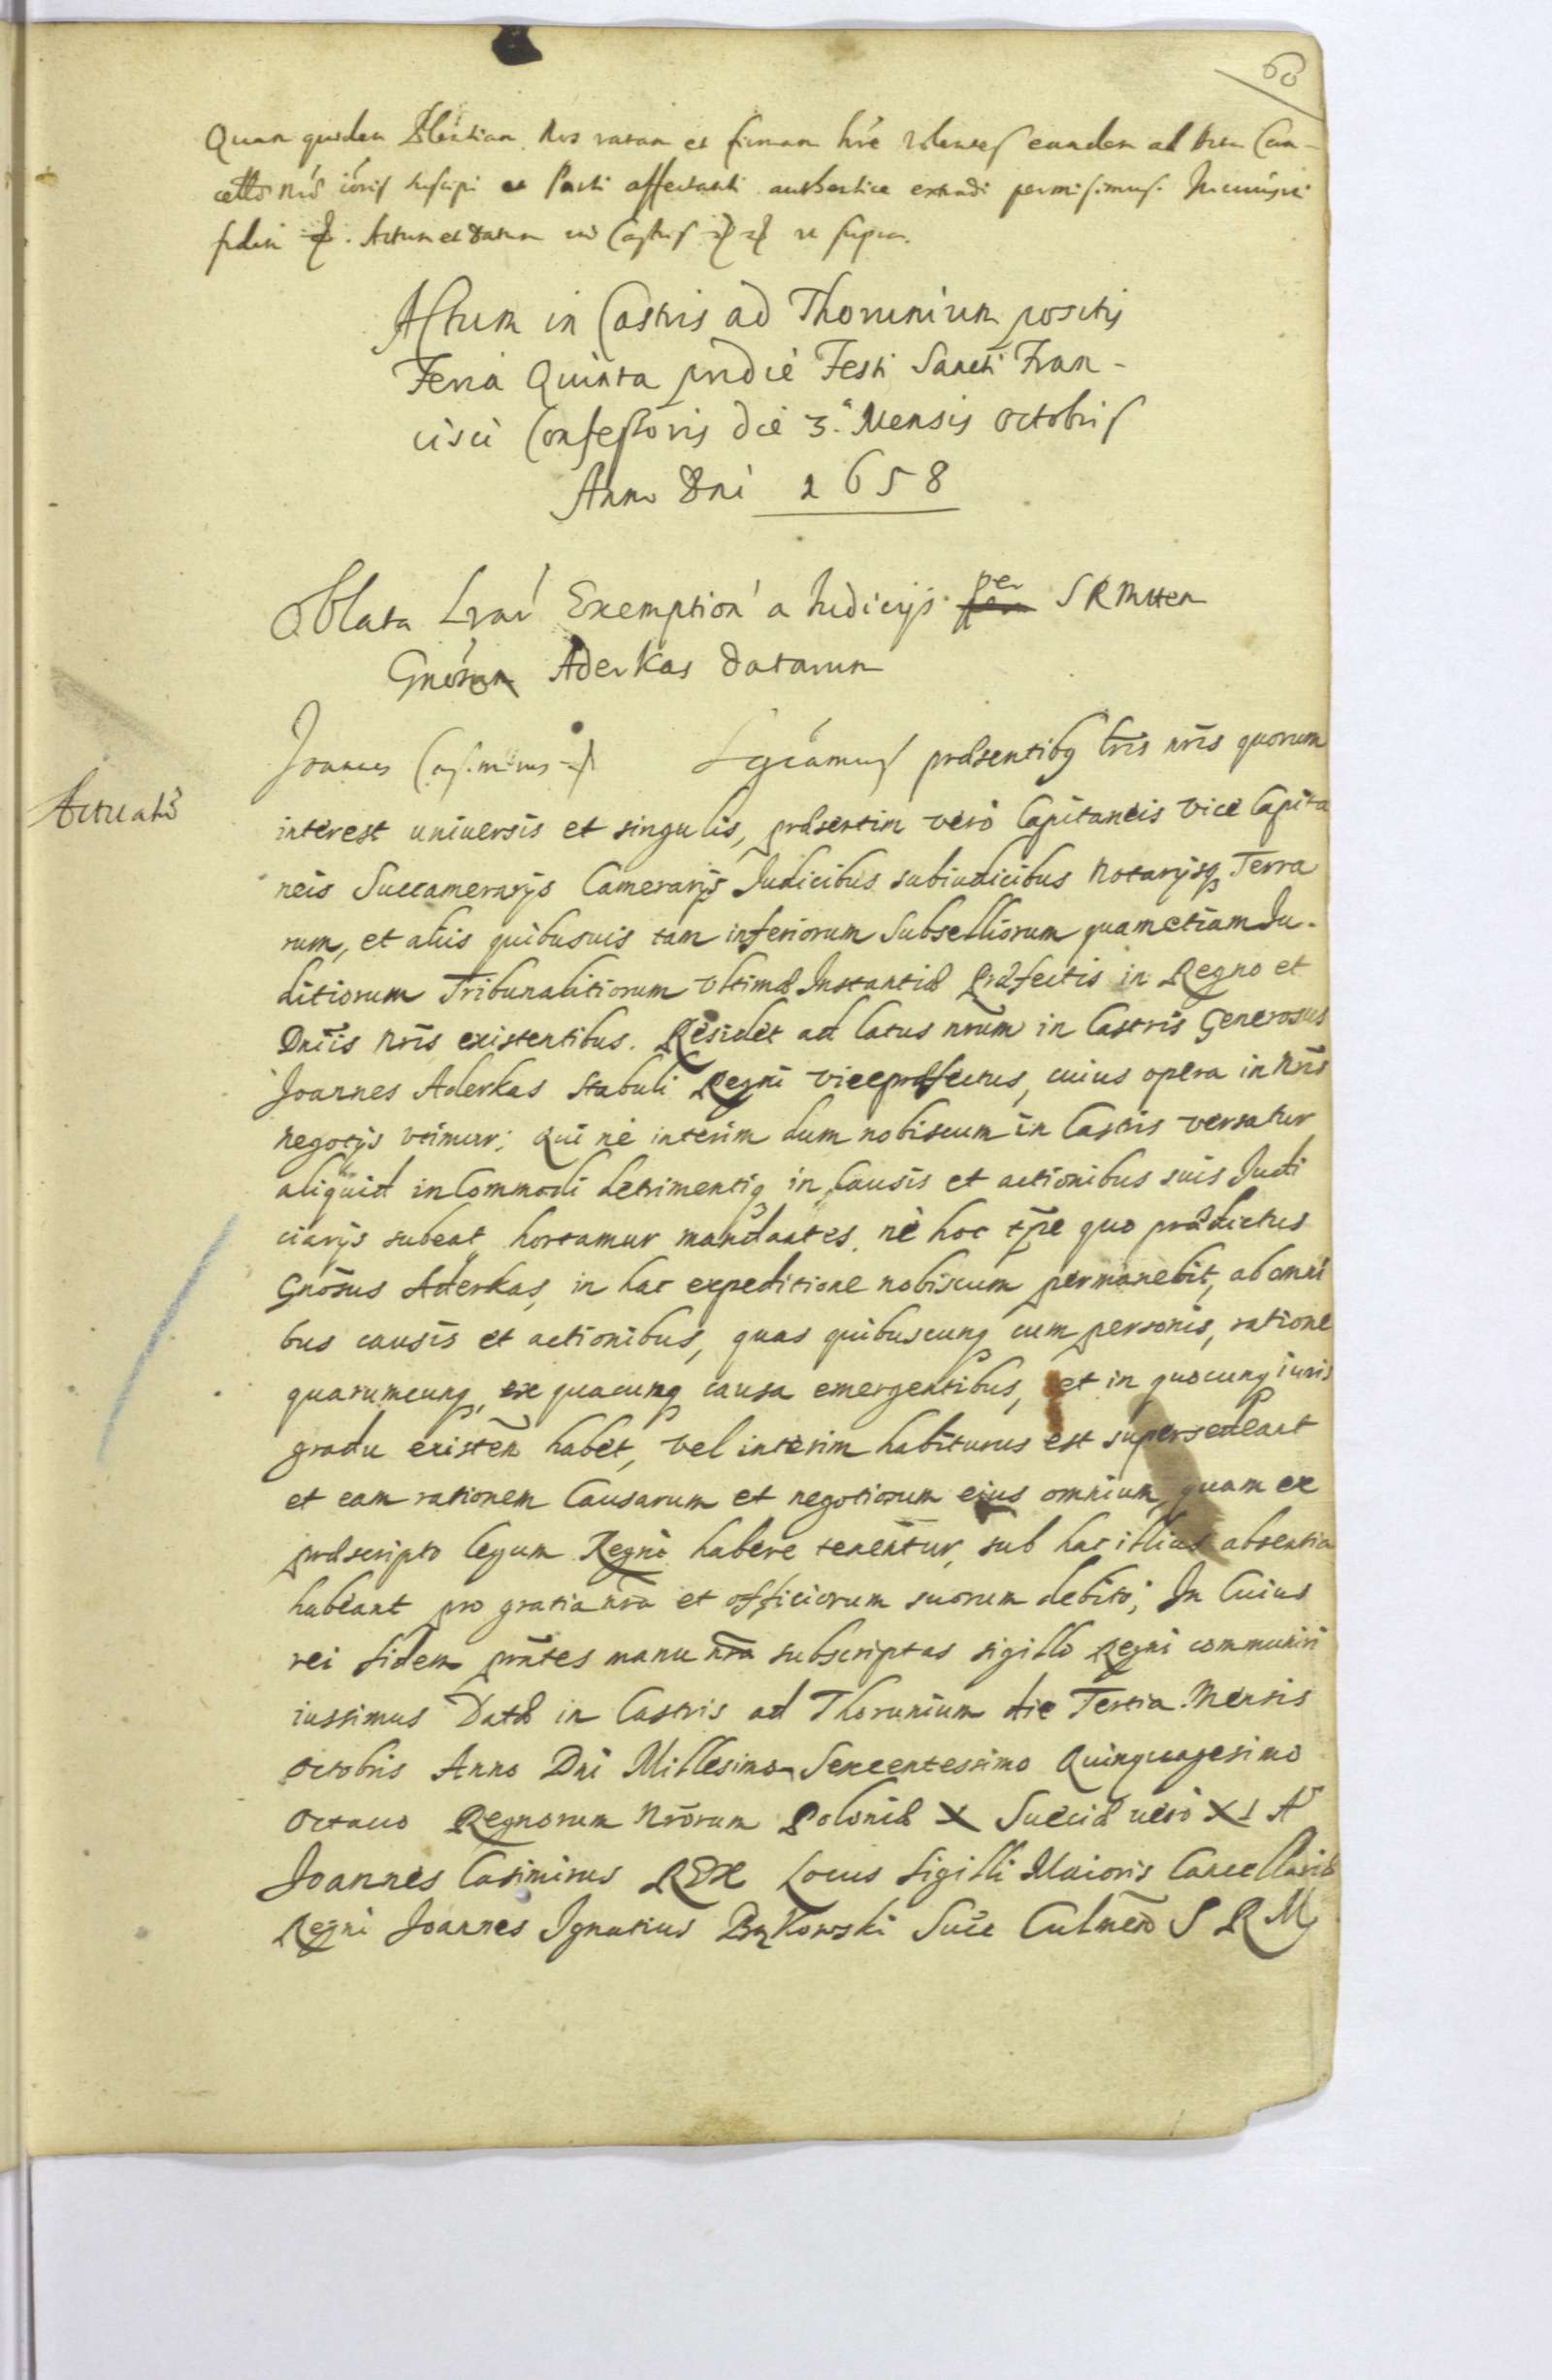 60
Quam quidem Oblationem Nos ratam et firmam hre volentes eandem ad Acta Can-
cellæ Næ suscipi et Parti affectanti authentice extradi permisimus. In cuius rei
fidem. Actum et Datum in Castris ut supra.
Actum in Castris ad Thorunium positis
Feria Quinta pridie Festi Sancti Fran-
cisci Confessoris die 3ª Mensis Octobris
Anno Dni 1658
Oblata Lrar Exemption a Iudicijs per SRMttem
Gnosum Aderkas datarum
Joannes Casimirus Sgcamus præsentibq lris nris quorum
Actuatæ
interest uniuersis et singulis, præsertim verò Capitaneis Vice Capita
neis Succamerarijs Camerarijs Judicibus subiudicibus Notarijsq Terra
rum, et alijs quibusuis tam inferiorum Subselliorum quametiam Ju-
ditiorum Tribunalitiorum Vltimæ Instantiæ Præfectis in Regno et
Dniis Nris existentibus. Residet ad latus nrum in Castris Generosus
Joannes Aderkas Stabuli Regni Vicepræfectus, cuius opera in Nris
negotijs vtimur; Qui nè interim dum nobiscum in Castris versatur
aliquid inCommodi detrimentiq in Causis et actionibus suis Judi
ciarijs subeat hortamur mandantes, nè hoc tpre quo prædictus
Gnosus Aderkas, in hac expeditione nobiscum permanebit, ab omni
bus causis et actionibus, quas quibuscunq cum personis, ratione
quarumcunq, ex quacunq causa emergentibus, et in quocunq iuris
gradu existen habet, vel interim habiturus est supersedeant
et eam rationem Causarum et negotiorum eius omnium, quam ex
præscripto legum Regni habere tenentur, sub hac illius absentia
habeant pro gratia nra et officiorum suorum debito; In Cuius
rei fidem pntes manu nra subscriptas sigillo Regni communiri
iussimus Datæ in Castris ad Thorunium die Tertia Mensis
Octobris Anno Dni Millesimo Sexcentesimo Quinquagesimo
Octauo Regnorum Nrorum Poloniæ X Sueciæ uerò XI Aº
Joannes Casimirus REX Locus Sigilli Maioris Cancellariæ
Regni Joannes Ignatius Bąkowski Succ Culmen S R M